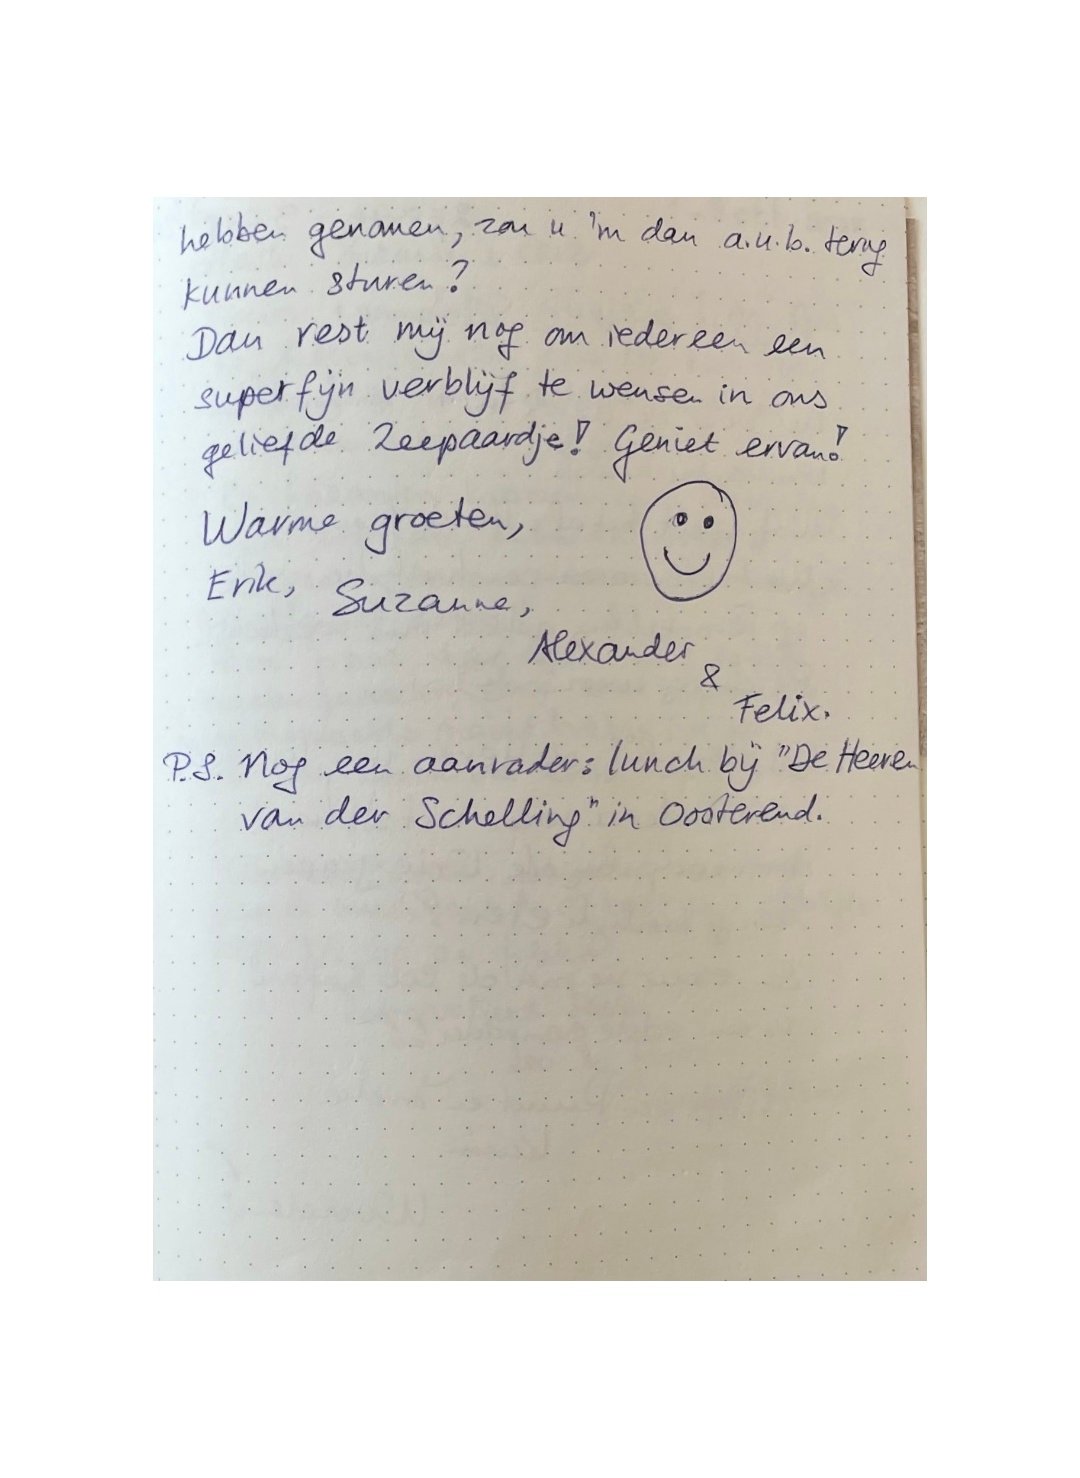 hebben genomen, zou u 'm dan a.u.b. terug
kunnen sturen?
Dan rest mij nog om iedereen een
superfijn verblijf te wensen in ons
geliefde Zeepaardje! Geniet ervan!
Warme groeten,
Erik, Suzanne,
Alexander
&
Felix.
P.S. Nog een aanrader: lunch bij "De Heeren
van der Schelling" in Oosterend.